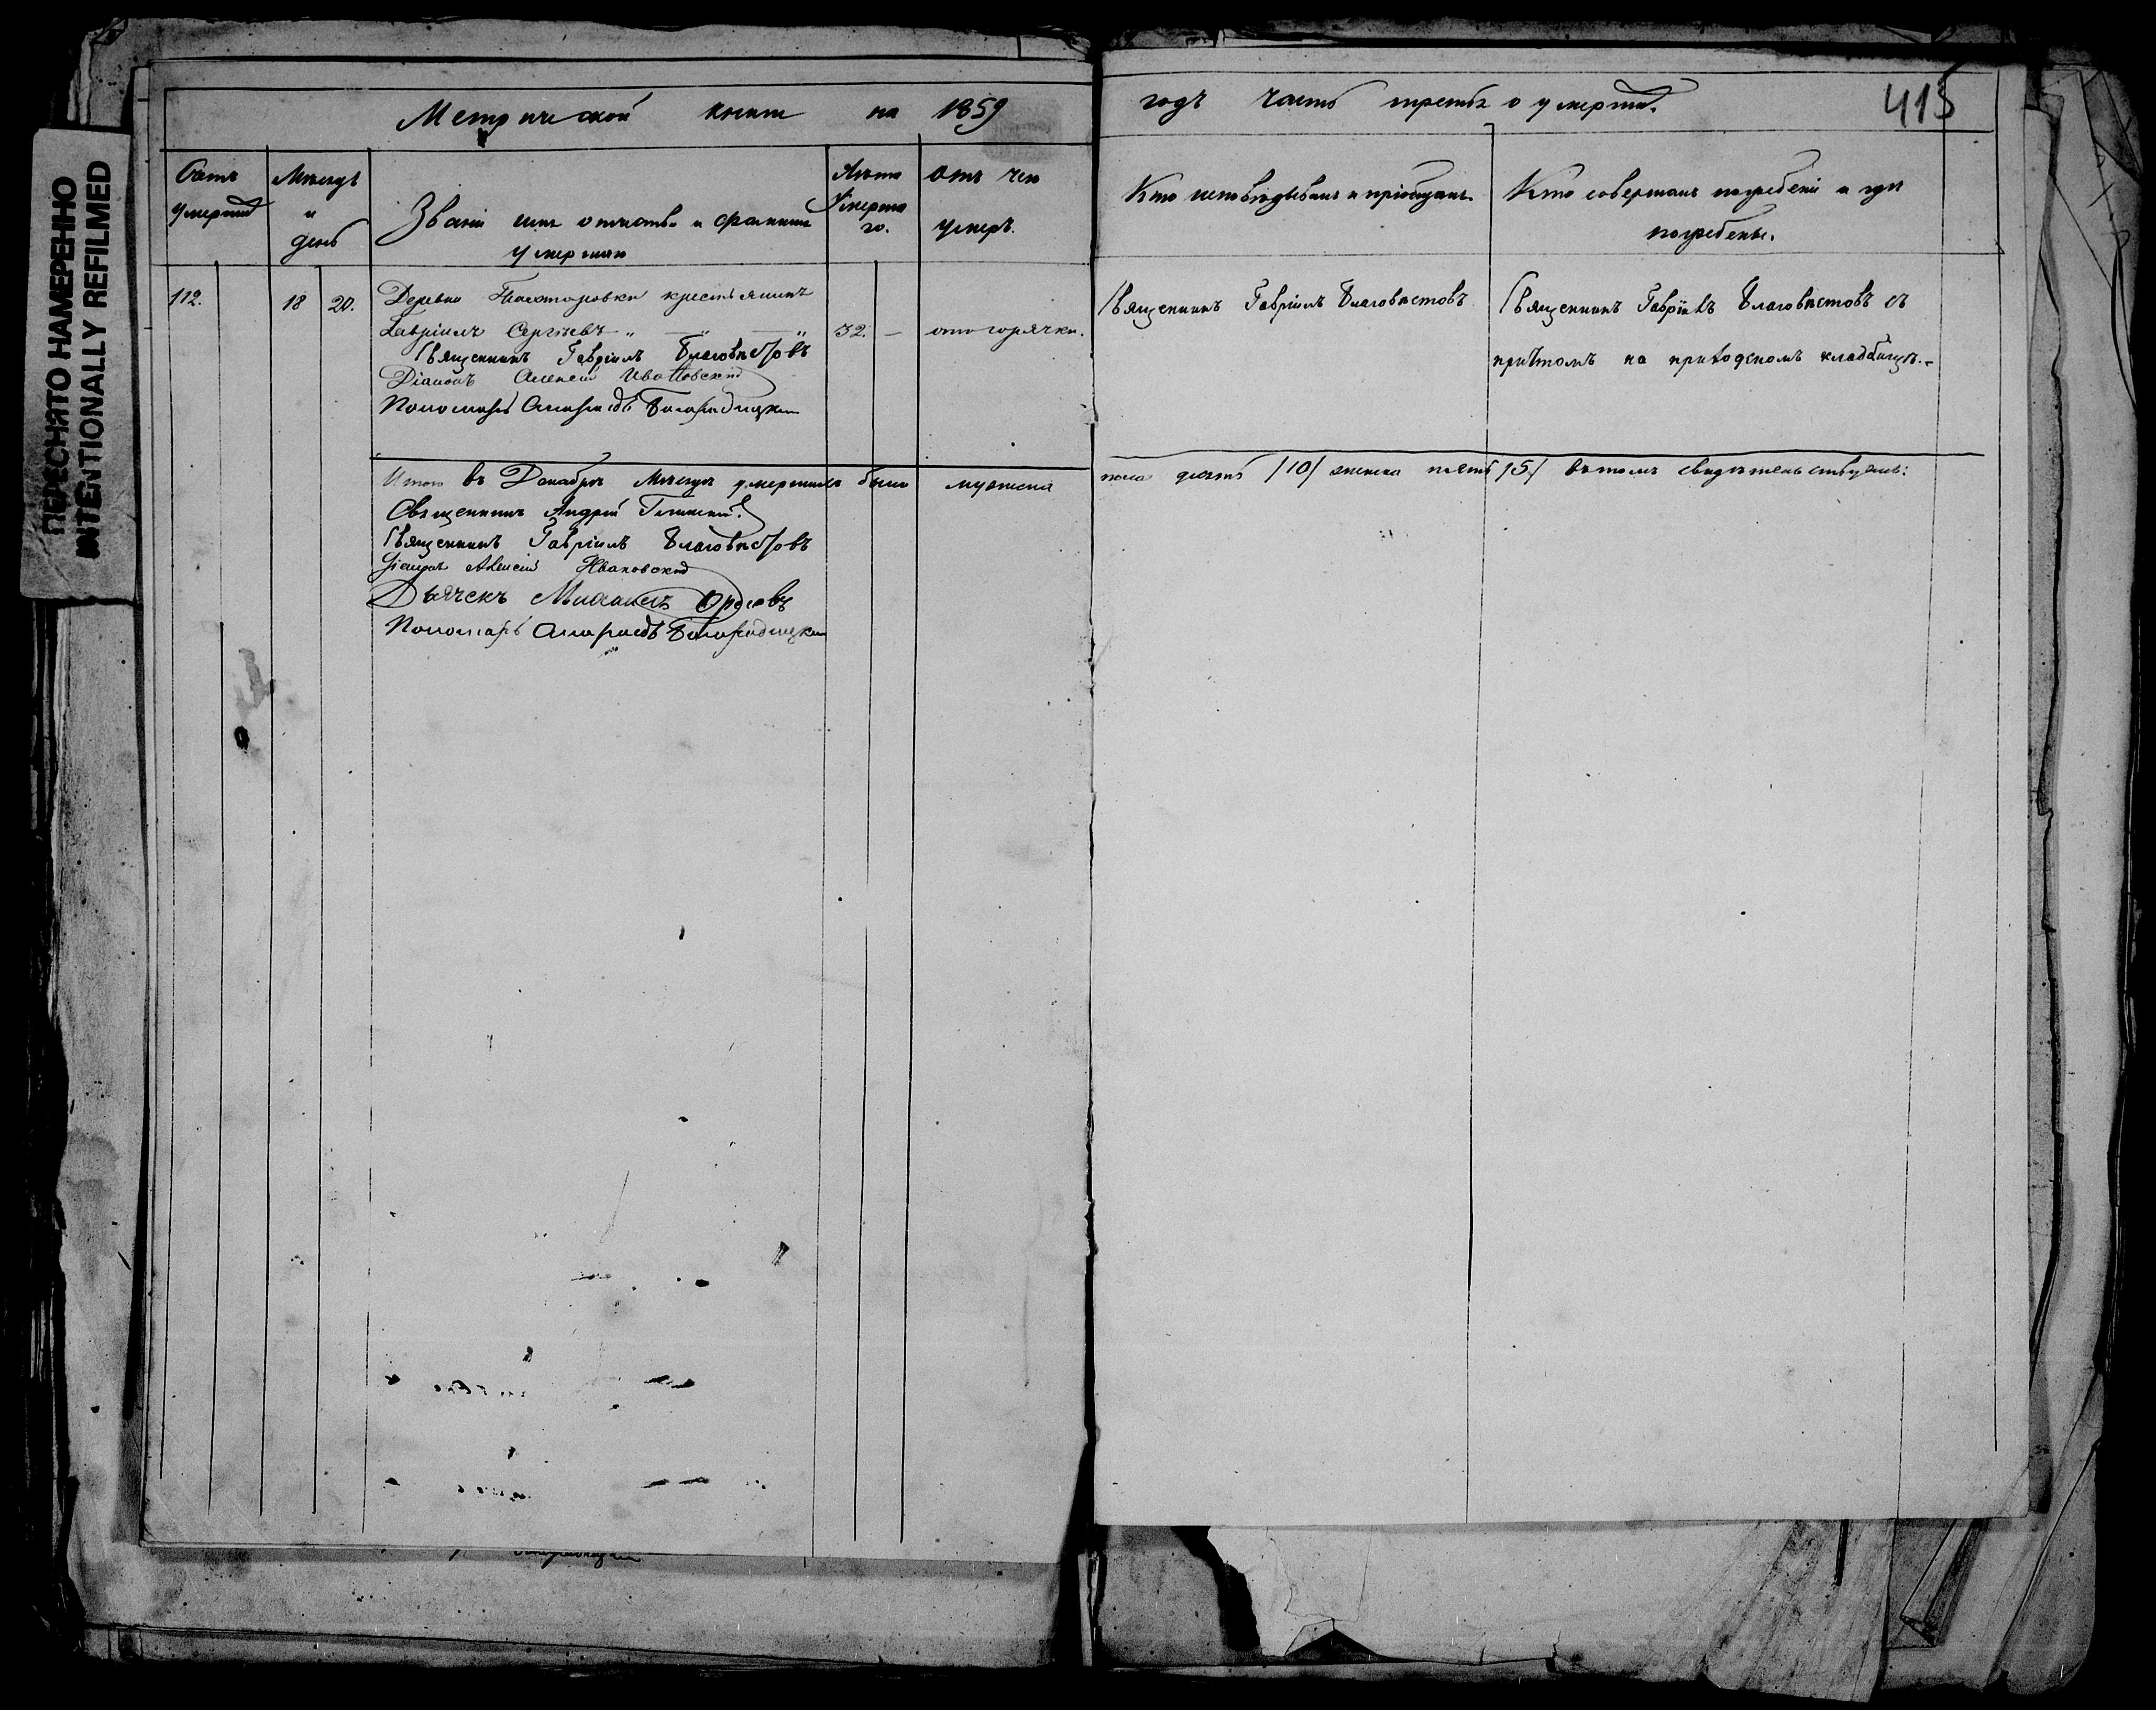 ПЕРЕСНЯТО НАМЕРЕННО
INTENTIONALLY REFILMED
Метрической книги на 1859
годъ часть третья о умершихъ.
415
Счетъ умершихъ
Мѣсяцъ и день
Званіе имя отчество и фамилія умершаго
Лѣта Умершаго.
Отъ чего умеръ.
Кто исповѣдывалъ и пріобщалъ.
Кто совершалъ погребеніе и гдѣ погребены.
112. 18 20. Деревни крестьянинъ
Гавріилъ Сергѣевъ 32. — отъ горячки.
Священникъ Гавріилъ Благовѣстовъ
Священникъ Гавріилъ Благовѣстовъ съ
причтомъ на приходскомъ кладбищѣ.-
Священникъ Гавріилъ Благовѣстовъ
Діаконъ Алексій Ивановскій
Пономарь Богородицкій
Итого въ Декабрѣ Мѣсяцѣ умершихъ было мужеска пола десять /10/ женска пять /5/ въ томъ свидѣтельствуемъ:
Священникъ Андрей
Священникъ Гавріилъ Благовѣстовъ
Діаконъ Алексій Ивановскій
Дьячекъ Михаилъ Орловъ
Пономарь Богородицкій